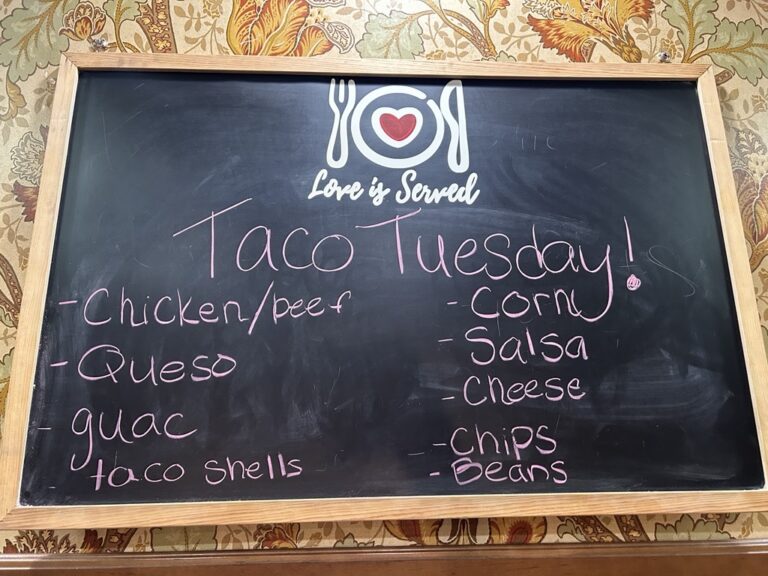 Love is Served
Taco Tuesday!
- Chicken/beef
- Queso
- guac
taco shells
- Corn
- Salsa
- Cheese
- Chips
- Beans